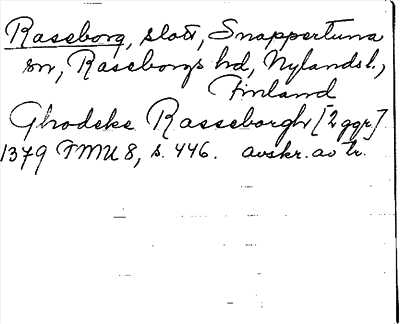 Raseborg, slott, Snappertuna
sn, Raseborgs hd, Nylands l.,
Finland
Ghodeke Rasseborgh [2 ggr]
1379 FMU 8, s. 446. avskr. av tr.